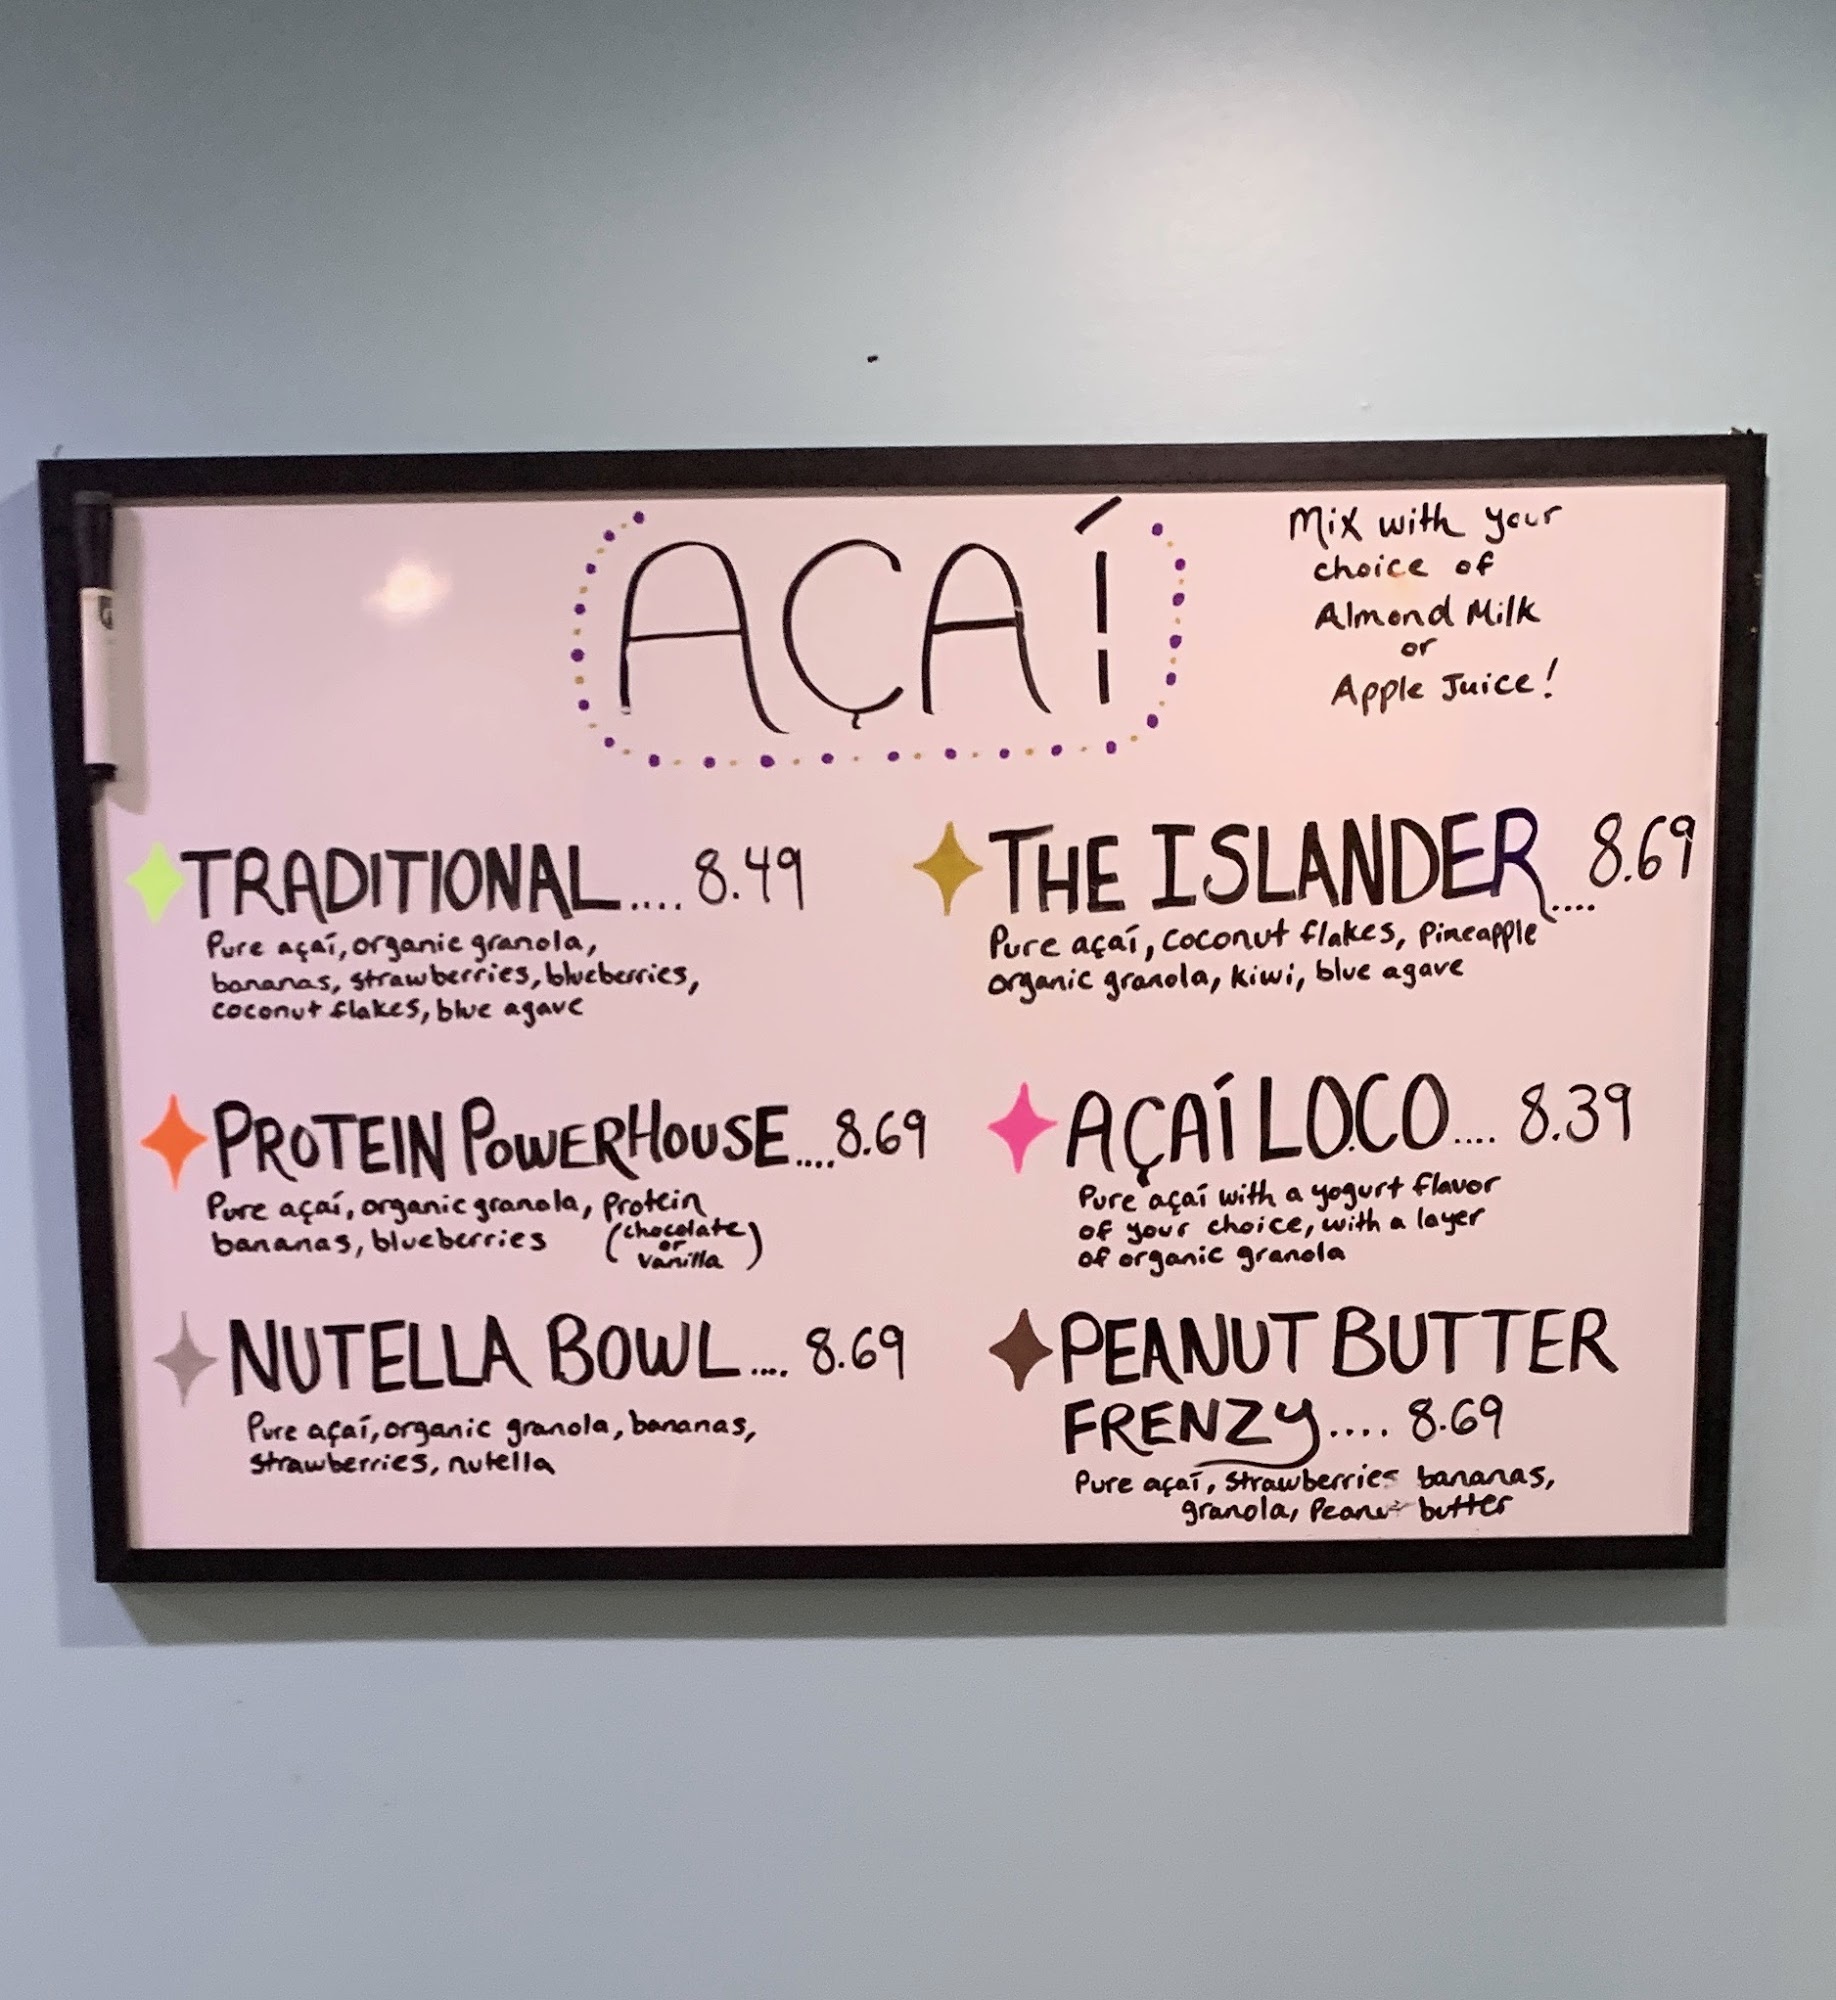 AÇAÍ
Mix with your
choice of
Almond Milk
or
Apple Juice!
TRADITIONAL.... 8.49
Pure açaí, organic granola,
bananas, strawberries, blueberries,
coconut flakes, blue agave
THE ISLANDER.... 8.69
Pure açaí, coconut flakes, pineapple
organic granola, kiwi, blue agave
PROTEIN POWERHOUSE....8.69
Pure açaí, organic granola, protein
bananas, blueberries (chocolate
or
vanilla)
AÇAÍ LOCO.... 8.39
Pure açaí with a yogurt flavor
of your choice, with a layer
of organic granola
NUTELLA BOWL.... 8.69
Pure açaí, organic granola, bananas,
strawberries, nutella
PEANUT BUTTER
FRENZY.... 8.69
Pure açaí, strawberries bananas,
granola, Peanut butter